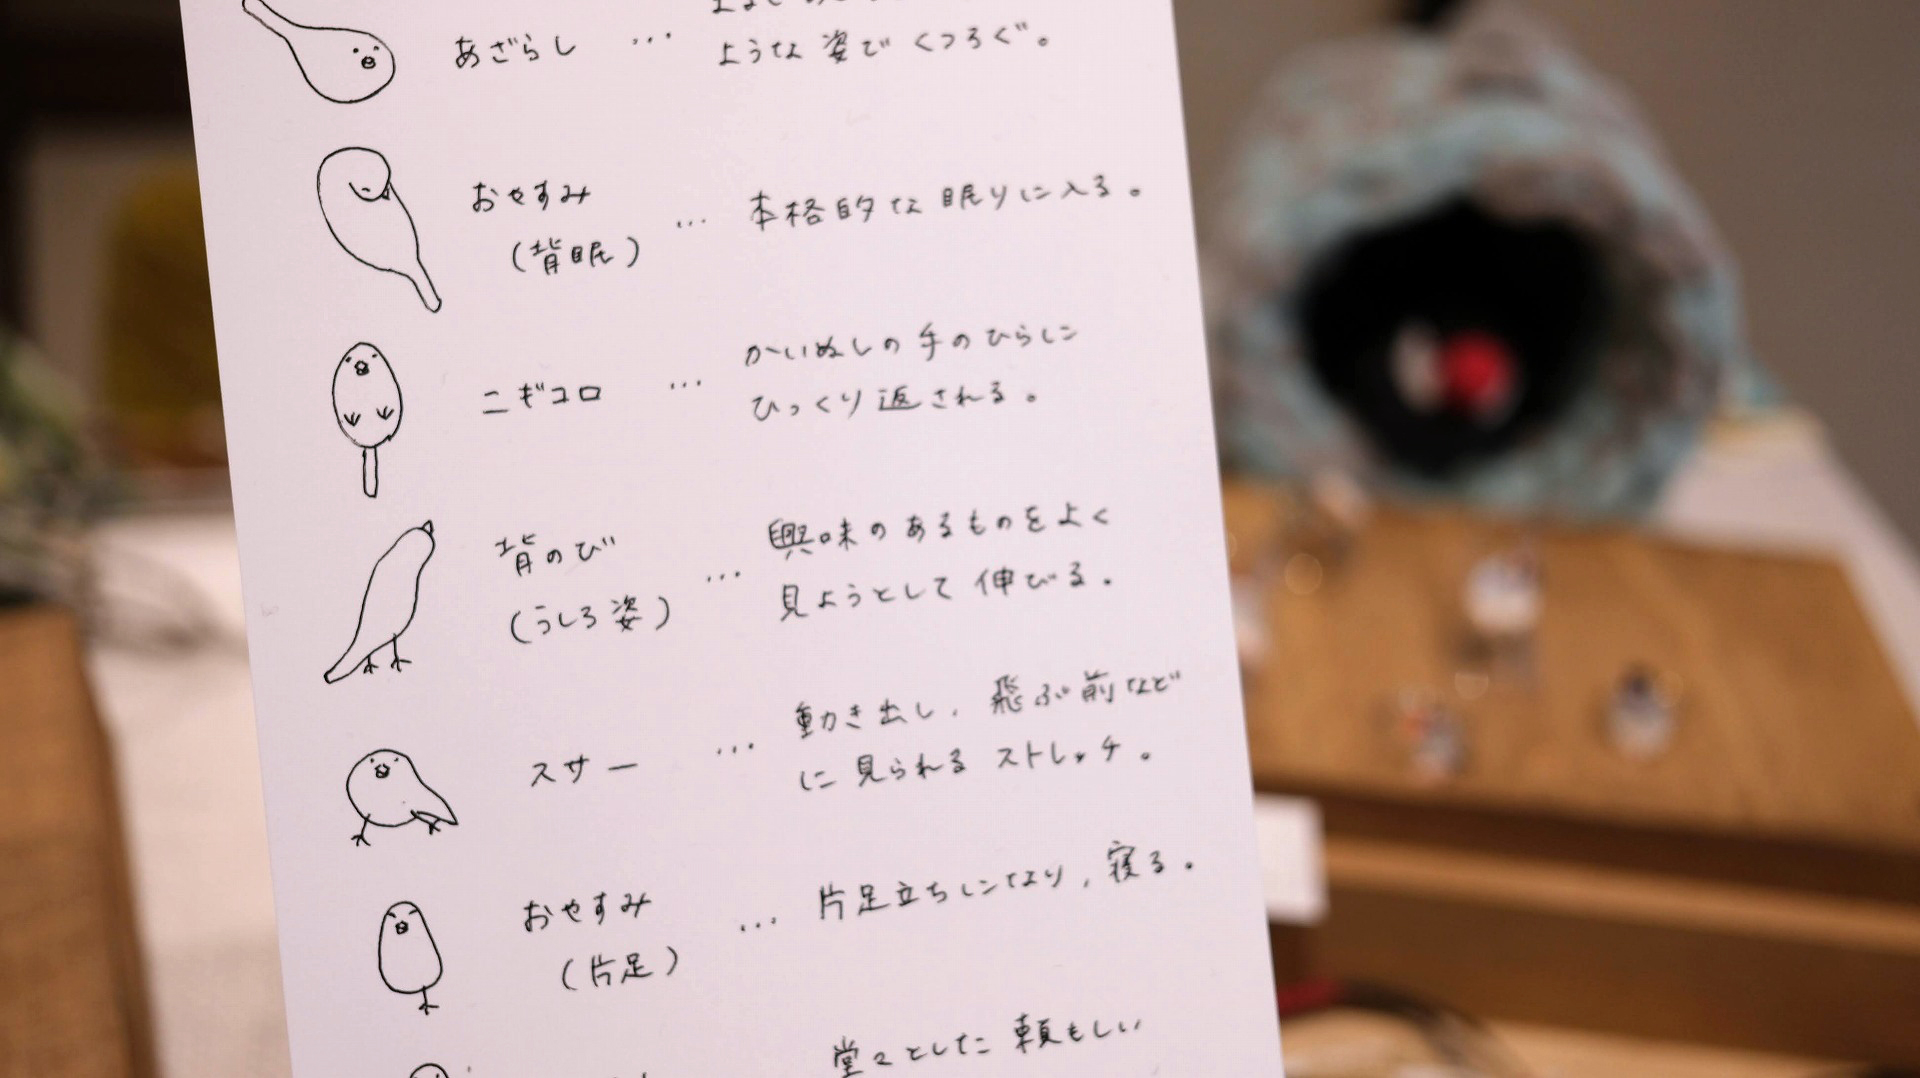 あざらし … ような姿でくつろぐ。
おやすみ
(背眠) … 本格的な眠りに入る。
ニギコロ … かいぬしの手のひらに
ひっくり返される。
背のび
(うしろ姿) … 興味のあるものをよく
見ようとして伸びる。
スサー … 動き出し、飛ぶ前など
に見られるストレッチ。
おやすみ
(片足) … 片足立ちになり、寝る。
堂々とした頼もしい